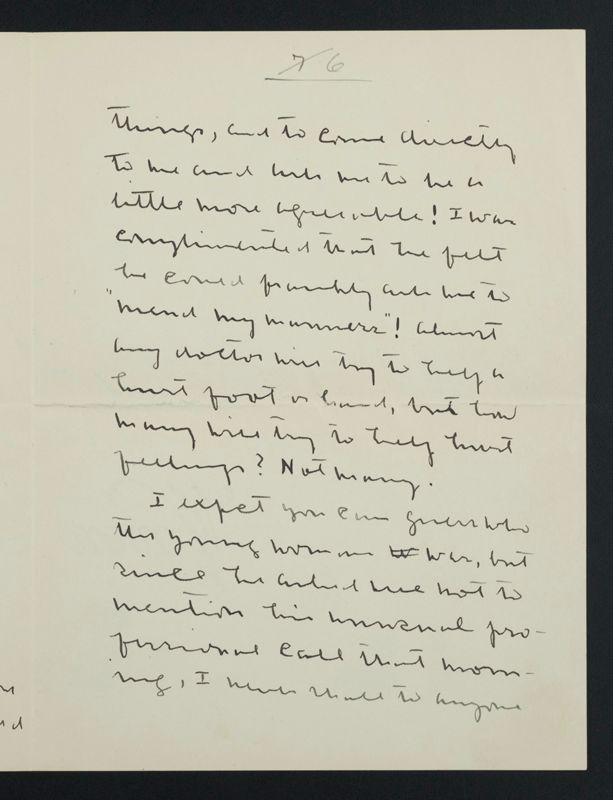 7 6
things, and to come directly
to me and ask me to be a
little more agreeable! I was
complimented that he felt
he could frankly ask me to
"mend my manners"! Almost
any doctor will try to help a
hurt foot or hand, but how
many will try to help hurt
feelings? Not many.
I expect you can guess who
the young woman W was, but
since he asked me not to
mention his unusual pro-
fessional call that morn-
ing, I never shall to anyone